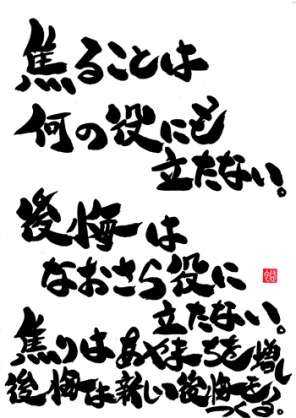 焦ることは
何の役にも
立たない。
後悔は
なおさら役に
立たない。
焦りはあやまちを増し
後悔は新しい後悔を
つくる。